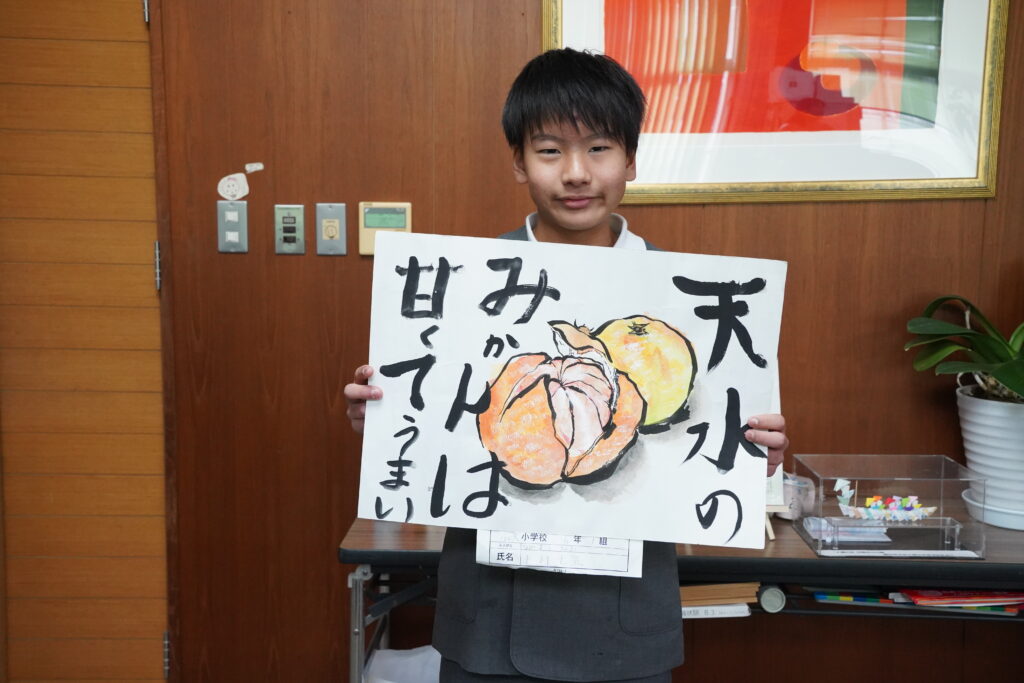 天水の
みかんは
甘くてうまい
小学校 年 組
氏名